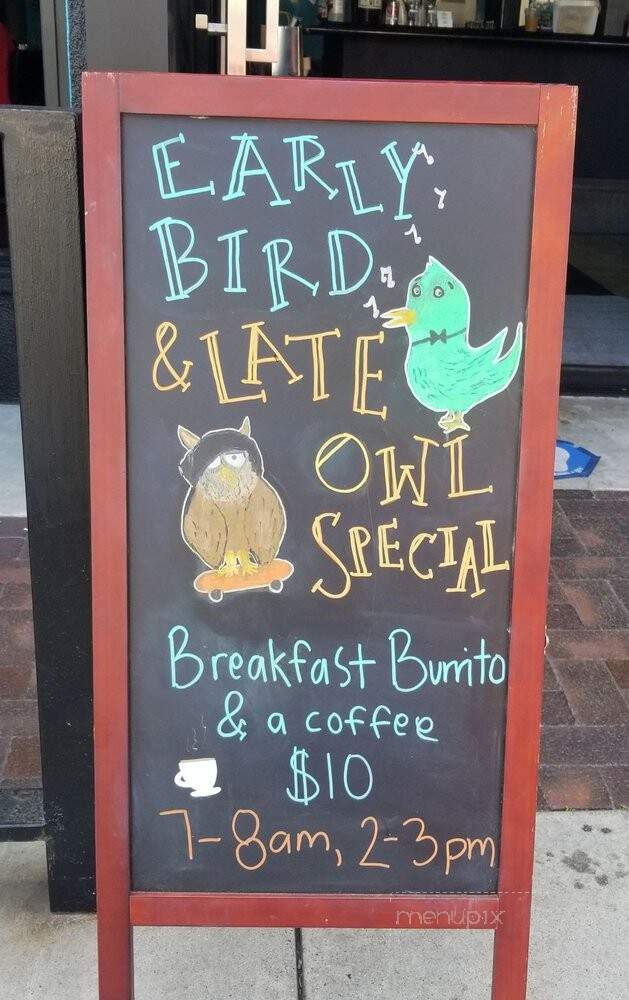 EARLY
BIRD
& LATE
OWL
SPECIAL
Breakfast Burrito
& a coffee
$10
7-8am, 2-3pm
menupix